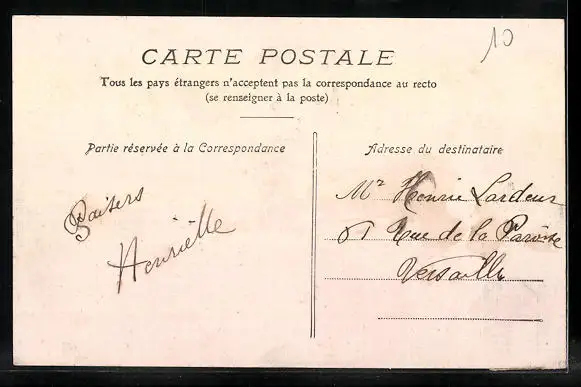 10
CARTE POSTALE
Tous les pays étrangers n'acceptent pas la correspondance au recto
(se renseigner à la poste)
Partie réservée à la Correspondance
Adresse du destinataire
Baisers
Henriette
Mr Henrie Lardeur
Rue de la Paroisse
Versailles